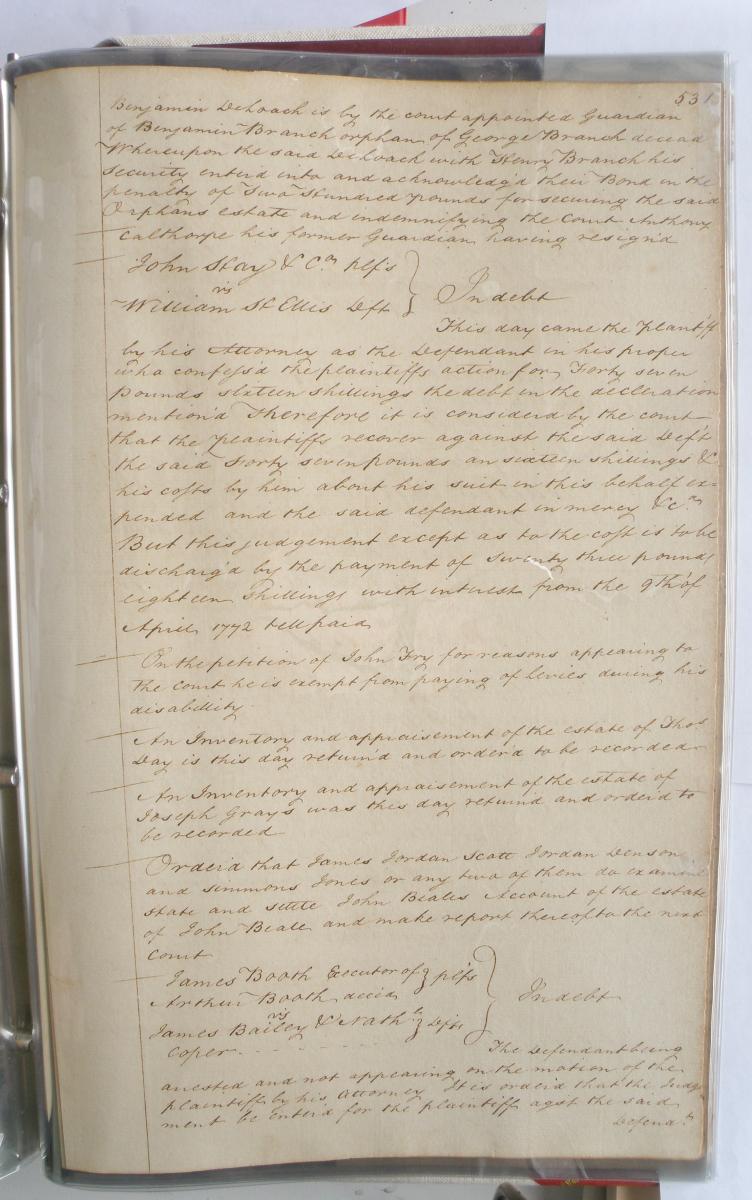 531
Benjamin Deloach is by the court appointed Guardian
of Benjamin Branch orphan of George Branch decead
Whereupon the said Deloach with Henry Branch his
security enterd into and acknowledg'd their Bond in the
penalty of Two Hundred pounds for securing the said
Orphans estate and indemnifying the Court Anthony
Calthorpe his former Guardian having resign'd
John Hay & Co plfs
vs
William St Ellis Deft
In debt
This day came the plantiff
by his Attorney as the Defendant in his proper
who confess'd the plaintiffs action for Forty seven
pounds sixteen shillings the debt in the decleration
mention'd Therefore it is considerd by the court
that the plaintiffs recover against the said Deft
the said Forty seven pounds an sixteen shillings &
his costs by him about his suit in this behalf ex=
pended and the said defendant in mercy &c
But this judgement except as to the cost is to be
discharg'd by the payment of Twenty three pounds
eighteen shillings with interest from the 9th of
April 1772 till paid
On the petition of John Fry for reasons appearing to
the court he is exempt from paying of levies during his
disability
An Inventory and appraisement of the estate of Thos
Day is this day return'd and order'd to be recorded
An Inventory and appraisement of the estate of
Joseph Grays was this day return'd and order'd to
be recorded
Order'd that James Jordan Scott Jordan Denson
and simmons Jones or any two of them do examine
state and settle John Beales Account of the estate
of John Beale and make report thereof to the next
court
James Booth Executor of plfs
Arthur Booth decead
vs
James Bailey & Nathl Defts
Coper
In debt
The Defendant being
arrested and not appearing on the motion of the
plaintiff by his Attorney It is order'd that the Judge
ment be enter'd for the plaintiff agst the said
Defendt